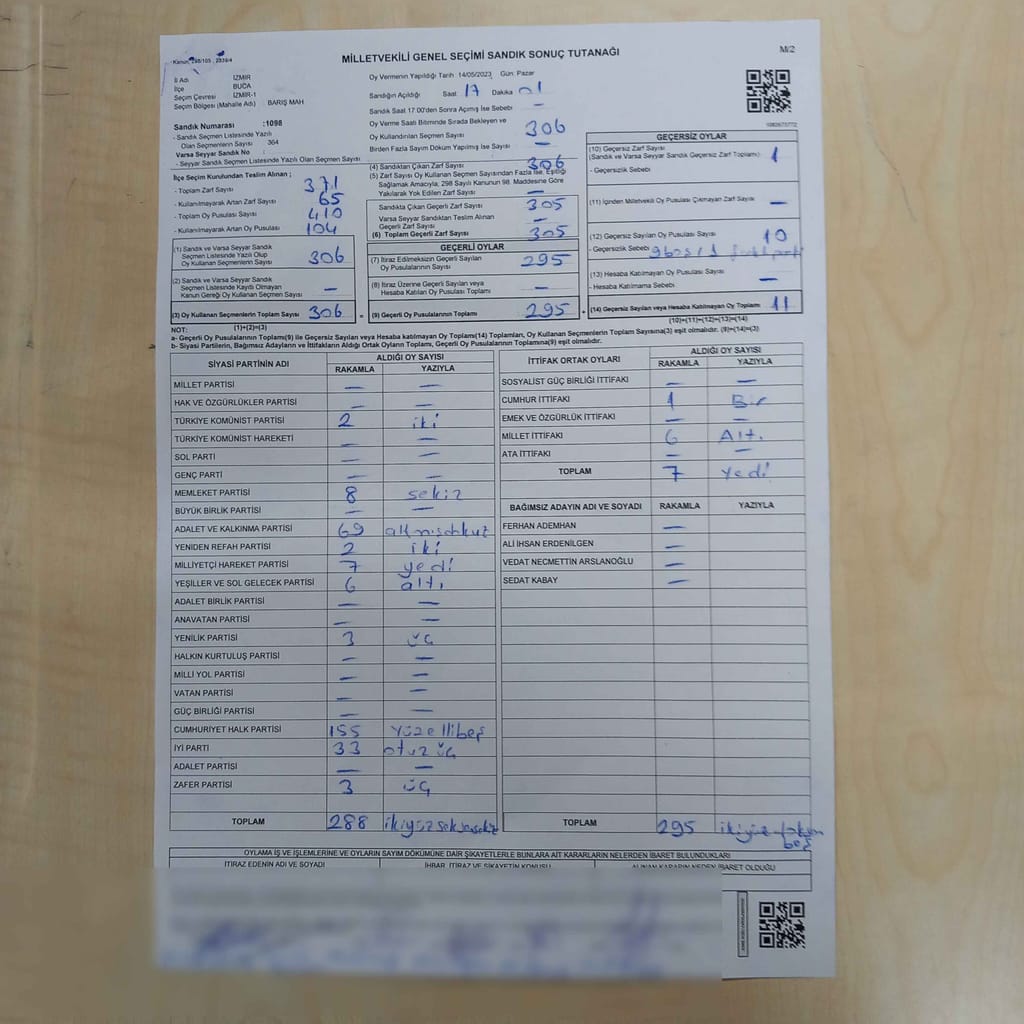 Kanun, 298/105 , 2839/4
MİLLETVEKİLİ GENEL SEÇİMİ SANDIK SONUÇ TUTANAĞI
M/2
İl Adı İZMİR
İlçe BUCA
Seçim Çevresi İZMİR-1
Seçim Bölgesi (Mahalle Adı) BARIŞ MAH
Sandık Numarası :1098
- Sandık Seçmen Listesinde Yazılı
Olan Seçmenlerin Sayısı 364
Varsa Seyyar Sandık No :
- Seyyar Sandık Seçmen Listesinde Yazılı Olan Seçmen Sayısı
İlçe Seçim Kurulundan Teslim Alınan ;
- Toplam Zarf Sayısı 371
- Kullanılmayarak Artan Zarf Sayısı 65
- Toplam Oy Pusulası Sayısı 410
- Kullanılmayarak Artan Oy Pusulası 104
(1) Sandık ve Varsa Seyyar Sandık
Seçmen Listesinde Yazılı Olup
Oy Kullanan Seçmenlerin Sayısı 306
(2) Sandık ve Varsa Seyyar Sandık
Seçmen Listesinde Kaydı Olmayan
Kanun Gereği Oy Kullanan Seçmen Sayısı —
(3) Oy Kullanan Seçmenlerin Toplam Sayısı 306 =
(1)+(2)=(3)
Oy Vermenin Yapıldığı Tarih 14/05/2023 Gün: Pazar
Sandığın Açıldığı Saat 17 Dakika 01
Sandık Saat 17:00'den Sonra Açılmış İse Sebebi —
Oy Verme Saati Bitiminde Sırada Bekleyen ve
Oy Kullandırılan Seçmen Sayısı 306
Birden Fazla Sayım Döküm Yapılmış İse Sayısı —
(4) Sandıktan Çıkan Zarf Sayısı 306
(5) Zarf Sayısı Oy Kullanan Seçmen Sayısından Fazla İse, Eşitliği
Sağlamak Amacıyla, 298 Sayılı Kanunun 98. Maddesine Göre
Yakılarak Yok Edilen Zarf Sayısı —
Sandıkta Çıkan Geçerli Zarf Sayısı 305
Varsa Seyyar Sandıktan Teslim Alınan
Geçerli Zarf Sayısı —
(6) Toplam Geçerli Zarf Sayısı 305
GEÇERLİ OYLAR
(7) İtiraz Edilmeksizin Geçerli Sayılan
Oy Pusulalarının Sayısı 295
(8) İtiraz Üzerine Geçerli Sayılan veya
Hesaba Katılan Oy Pusulası Toplamı —
(9) Geçerli Oy Pusulalarının Toplamı 295 +
1082673772
GEÇERSİZ OYLAR
(10) Geçersiz Zarf Sayısı
(Sandık ve Varsa Seyyar Sandık Geçersiz Zarf Toplamı) 1
- Geçersizlik Sebebi
(11) İçinden Milletvekili Oy Pusulası Çıkmayan Zarf Sayısı —
(12) Geçersiz Sayılan Oy Pusulası Sayısı 10
- Geçersizlik Sebebi
(13) Hesaba Katılmayan Oy Pusulası Sayısı —
- Hesaba Katılmama Sebebi
(14) Geçersiz Sayılan veya Hesaba Katılmayan Oy Toplamı 11
(10)+(11)+(12)+(13)=(14)
NOT:
a- Geçerli Oy Pusulalarının Toplamı(9) ile Geçersiz Sayılan veya Hesaba katılmayan Oy Toplamı(14) Toplamları, Oy Kullanan Seçmenlerin Toplam Sayısına(3) eşit olmalıdır. (9)+(14)=(3)
b- Siyasi Partilerin, Bağımsız Adayların ve İttifakların Aldığı Ortak Oyların Toplamı, Geçerli Oy Pusulalarının Toplamına(9) eşit olmalıdır.
SİYASİ PARTİNİN ADI ALDIĞI OY SAYISI
RAKAMLA YAZIYLA
MİLLET PARTİSİ — —
HAK VE ÖZGÜRLÜKLER PARTİSİ — —
TÜRKİYE KOMÜNİST PARTİSİ 2 iki
TÜRKİYE KOMÜNİST HAREKETİ — —
SOL PARTİ — —
GENÇ PARTİ — —
MEMLEKET PARTİSİ 8 sekiz
BÜYÜK BİRLİK PARTİSİ — —
ADALET VE KALKINMA PARTİSİ 69 altmışdokuz
YENİDEN REFAH PARTİSİ 2 iki
MİLLİYETÇİ HAREKET PARTİSİ 7 yedi
YEŞİLLER VE SOL GELECEK PARTİSİ 6 altı
ADALET BİRLİK PARTİSİ — —
ANAVATAN PARTİSİ — —
YENİLİK PARTİSİ 3 üç
HALKIN KURTULUŞ PARTİSİ — —
MİLLİ YOL PARTİSİ — —
VATAN PARTİSİ — —
GÜÇ BİRLİĞİ PARTİSİ — —
CUMHURİYET HALK PARTİSİ 155 yüzellibeş
İYİ PARTİ 33 otuz üç
ADALET PARTİSİ — —
ZAFER PARTİSİ 3 üç
TOPLAM 288 ikiyüzseksensekiz
İTTİFAK ORTAK OYLARI ALDIĞI OY SAYISI
RAKAMLA YAZIYLA
SOSYALİST GÜÇ BİRLİĞİ İTTİFAKI — —
CUMHUR İTTİFAKI 1 Bir
EMEK VE ÖZGÜRLÜK İTTİFAKI — —
MİLLET İTTİFAKI 6 Altı
ATA İTTİFAKI — —
TOPLAM 7 yedi
BAĞIMSIZ ADAYIN ADI VE SOYADI RAKAMLA YAZIYLA
FERHAN ADEMHAN —
ALİ İHSAN ERDENİLGEN —
VEDAT NECMETTİN ARSLANOĞLU —
SEDAT KABAY —
TOPLAM 295 ikiyüzdoksan
beş
OYLAMA İŞ VE İŞLEMLERİNE VE OYLARIN SAYIM DÖKÜMÜNE DAİR ŞİKAYETLERLE BUNLARA AİT KARARLARIN NELERDEN İBARET BULUNDUKLARI
İTİRAZ EDENİN ADI VE SOYADI İHBAR, İTİRAZ VE ŞİKAYETİN KONUSU ALINAN KARARIN NEDEN İBARET OLDUĞU